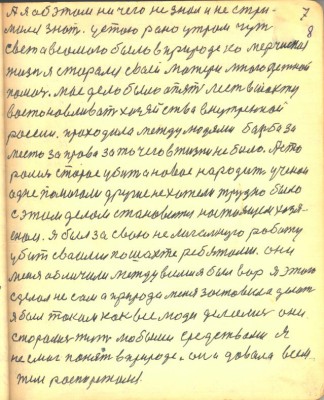 7
8
А я об этом ни чего не знал и не стре-
мился знат. устою рано утром чут
света весмого было в природе ко
жизня я старался своеи Матери много детной
помоч. мае дело было опят лест в шахту
востоновливат хозяйства внутреной
росии. проходила между людями барба за
место за права за то чего в жизни не было. Авто
ролия старое убит а новое народит. ученои
одне помогали другие не хотели трудно было
с этом делом становится настоящем хозя-
еном. Я был за свою не легальную работу
убит своими по шахте ребятоми. они
меня обличали между всеми я был вор я этого
сделал не сам а природа меня заставила делат
я был таким как все люди делали они
старалис жит любыми средствами Я
не смог понят в природе. он а довала всем
тем распоряжал.